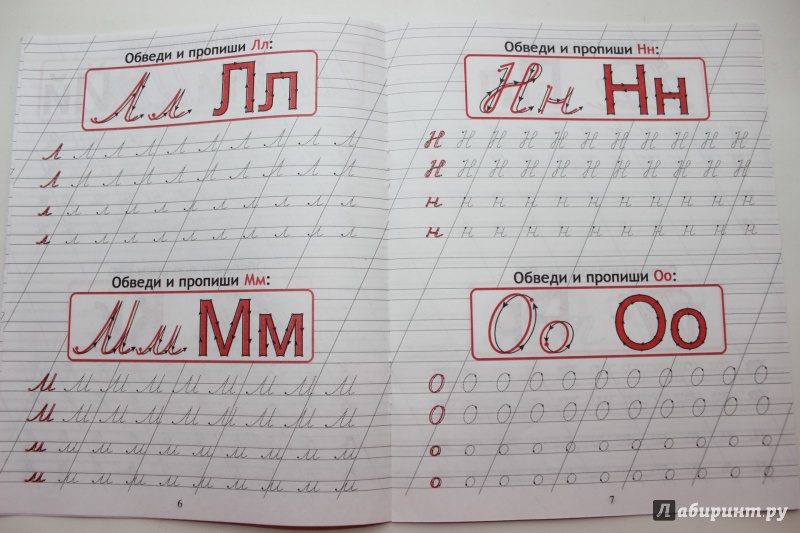 Обведи и пропиши Лл:
Лл Лл
Л Л Л Л Л Л Л Л Л Л
Л Л Л Л Л Л Л Л Л Л
л л л л л л л л л л
л л л л л л л л л л
Обведи и пропиши Мм:
Мм Мм
М М М М М М М М М
М М М М М М М М М
м м м м м м м м м м
м м м м м м м м м м
6
Обведи и пропиши Нн:
Нн Нн
Н Н Н Н Н Н Н Н Н Н Н
Н Н Н Н Н Н Н Н Н Н Н
н н н н н н н н н н н
н н н н н н н н н н н
Обведи и пропиши Оо:
Оо Оо
О О О О О О О О О О О
О О О О О О О О О О О
о о о о о о о о о о о
о о о о о о о о о о о
7
Лабиринт.ру